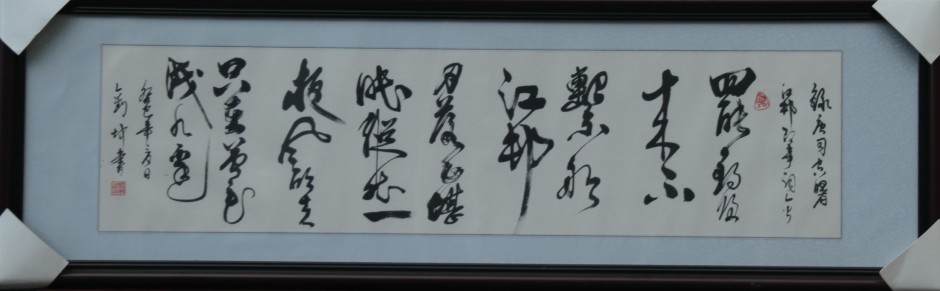 錄唐司空曙
江邨即事一首
罷釣歸
来不
繫船
江邨
月落正堪
眠縱然一
夜風吹去
只在蘆花
淺水邊
癸巳年月日
書